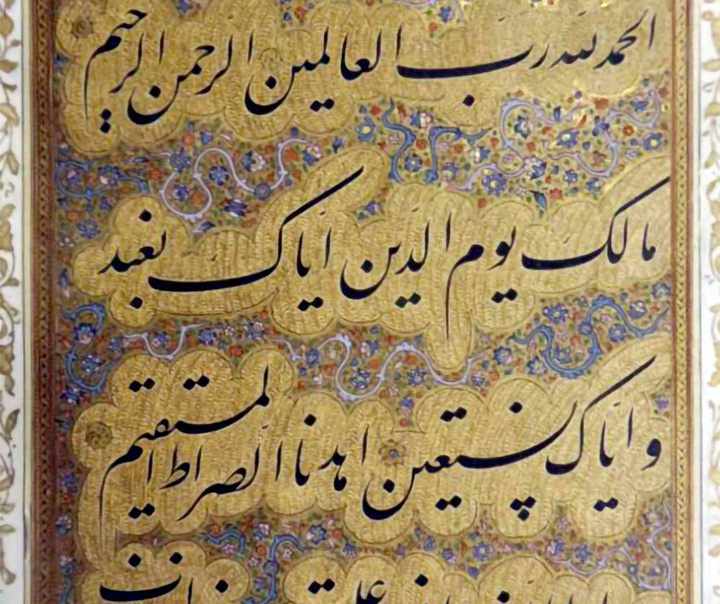 الحمد لله رب العالمين الرحمن الرحيم
مالك يوم الدين اياك نعبد
و اياك نستعين اهدنا الصراط المستقيم